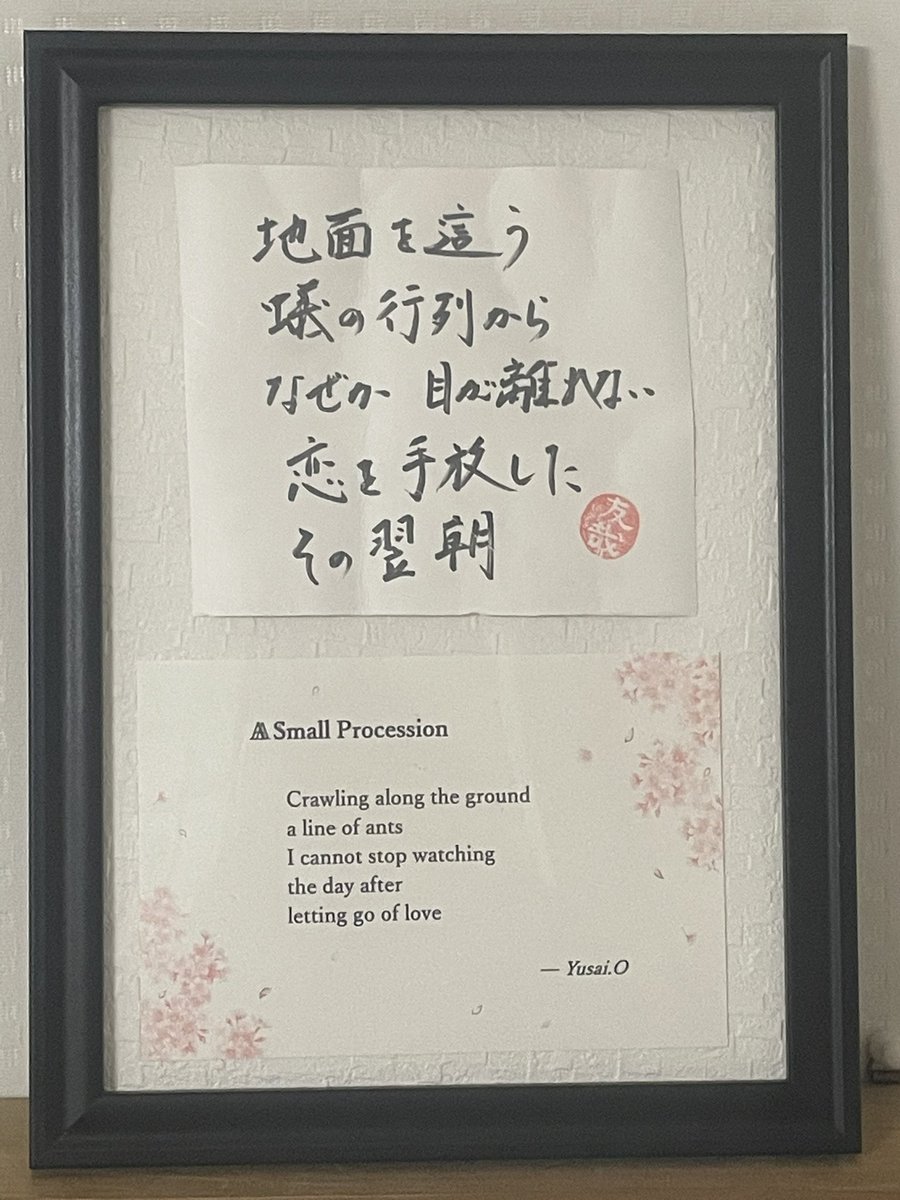 地面を這う
蟻の行列から
なぜか 目が離れない
恋を手放した
その翌朝
友哉
A Small Procession
Crawling along the ground
a line of ants
I cannot stop watching
the day after
letting go of love
— Yusai.O